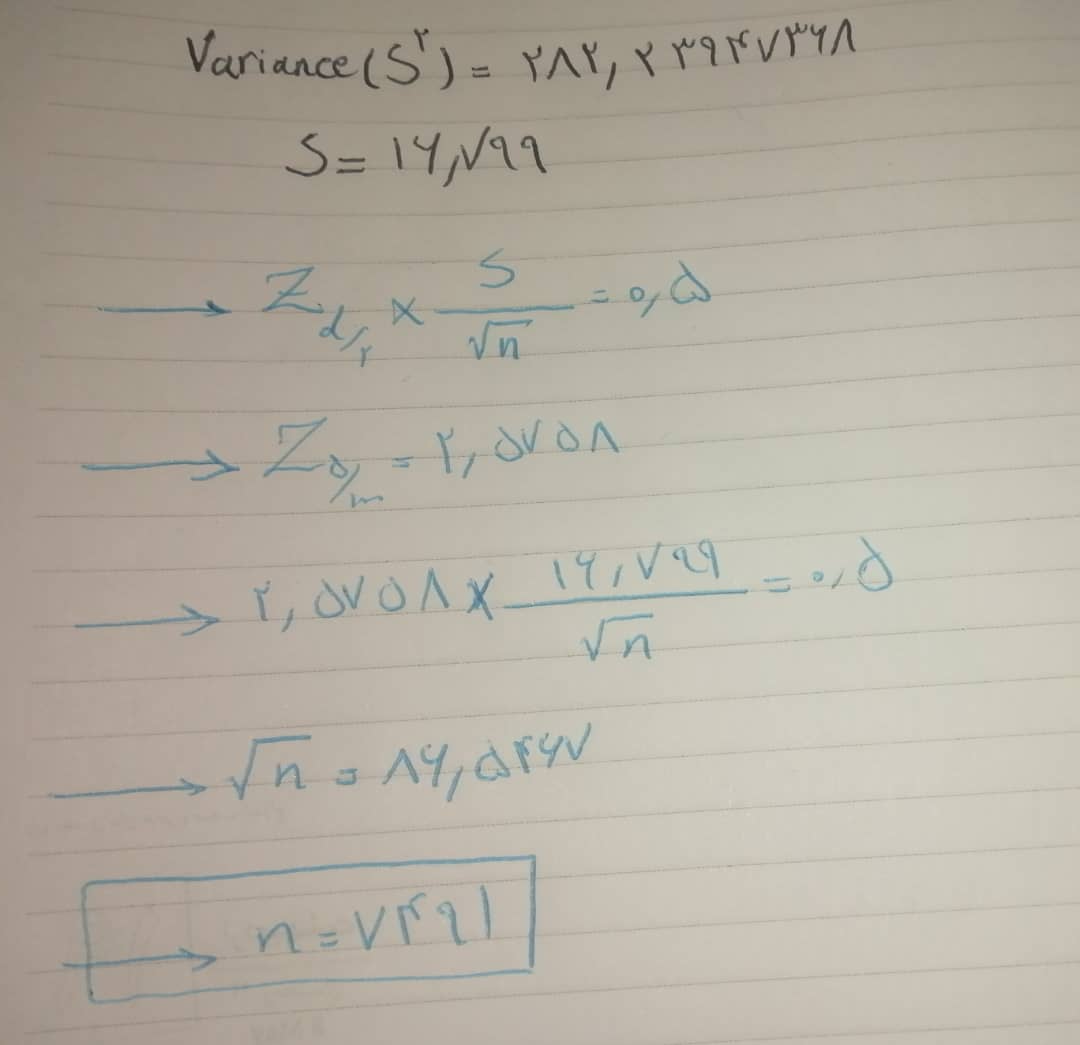 Variance(S²) = ۲۸۲,۲۳۹۴۷۳۶۸
S = ۱۶,۷۹۹
→ Z α/۲ × S/√n = ۰,۵
→ Z = ۲,۵۷۵۸
→ ۲,۵۷۵۸ × ۱۶,۷۹۹/√n = ۰,۵
→ √n = ۸۶,۵۴۶۷
→ n = ۷۴۹۱